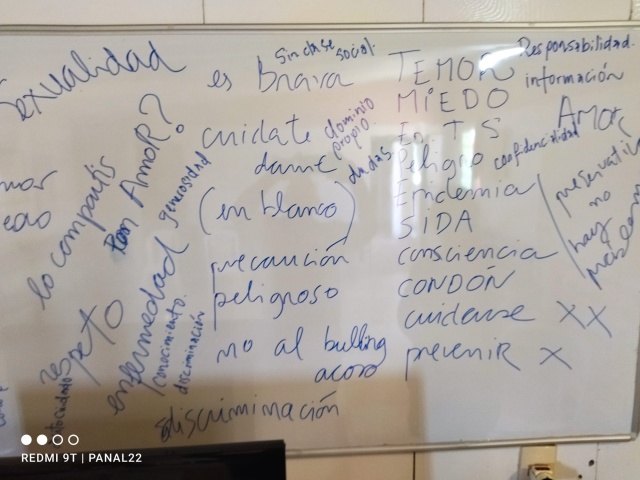 Sexualidad
es brava
Sin clase social.
TEMOR
Responsabilidad.
información
MIEDO
cuidate
dominio
propio.
E.T.S
Amor
dame
dudas
Peligro
confidencialidad
(en blanco)
Epidemia
preservativo
no
hay
SIDA
precaución
consciencia
peligroso
CONDÓN
cuidarse XX
no al bulling
acoso
prevenir X
discriminación
lo compartis
con AmoR?
generosidad
enfermedad
conocimiento.
discriminación
respeto
autocuidado
REDMI 9T | PANAL22